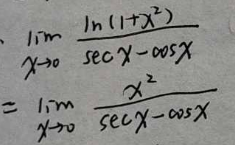 lim x→0 ln(1+x²) / (sec x - cos x)
= lim x→0 x² / (sec x - cos x)